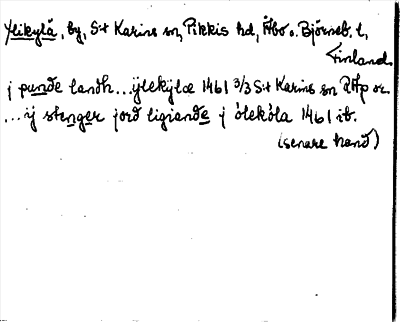 Ylikylä, by, S:t Karins sn, Pikkis hd, Åbo o. Björneb. l,
Finland.
j punde landh... ÿlekÿlæ 1461 3/3 S:t Karins sn or.
... ij stenger jord ligiande j ólekóla 1461 ib.
(senare hand)